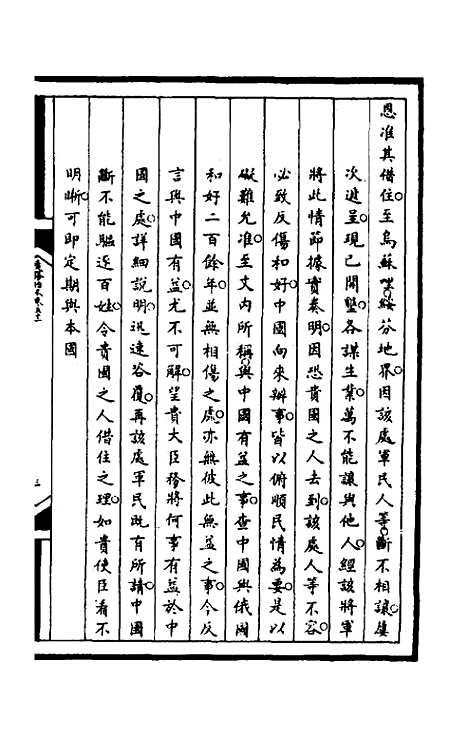 恩准其借住。至烏蘇哩綏芬地界。因該處軍民人等。斷不相讓。屢
次遞呈。現已開墾。各謀生業。萬不能讓與他人。經該將軍
將此情節據實奏明。因恐貴國之人去到該處人等不容。
必致反傷和好。中國向來辦事。皆以俯順民情為要。是以
礙難允准。至文內所稱。與中國有益之事。查中國與俄國
和好二百餘年。並無相傷之處。亦無彼此無益之事。今反
言與中國有益。尤不可解。望貴大臣務將何事有益於中
國之處。詳細說明。迅速咨覆。再該處軍民既有所請。中國
斷不能驅逐百姓。令貴國之人借住之理。如貴使臣看不
明晰。可即定期與本國
三